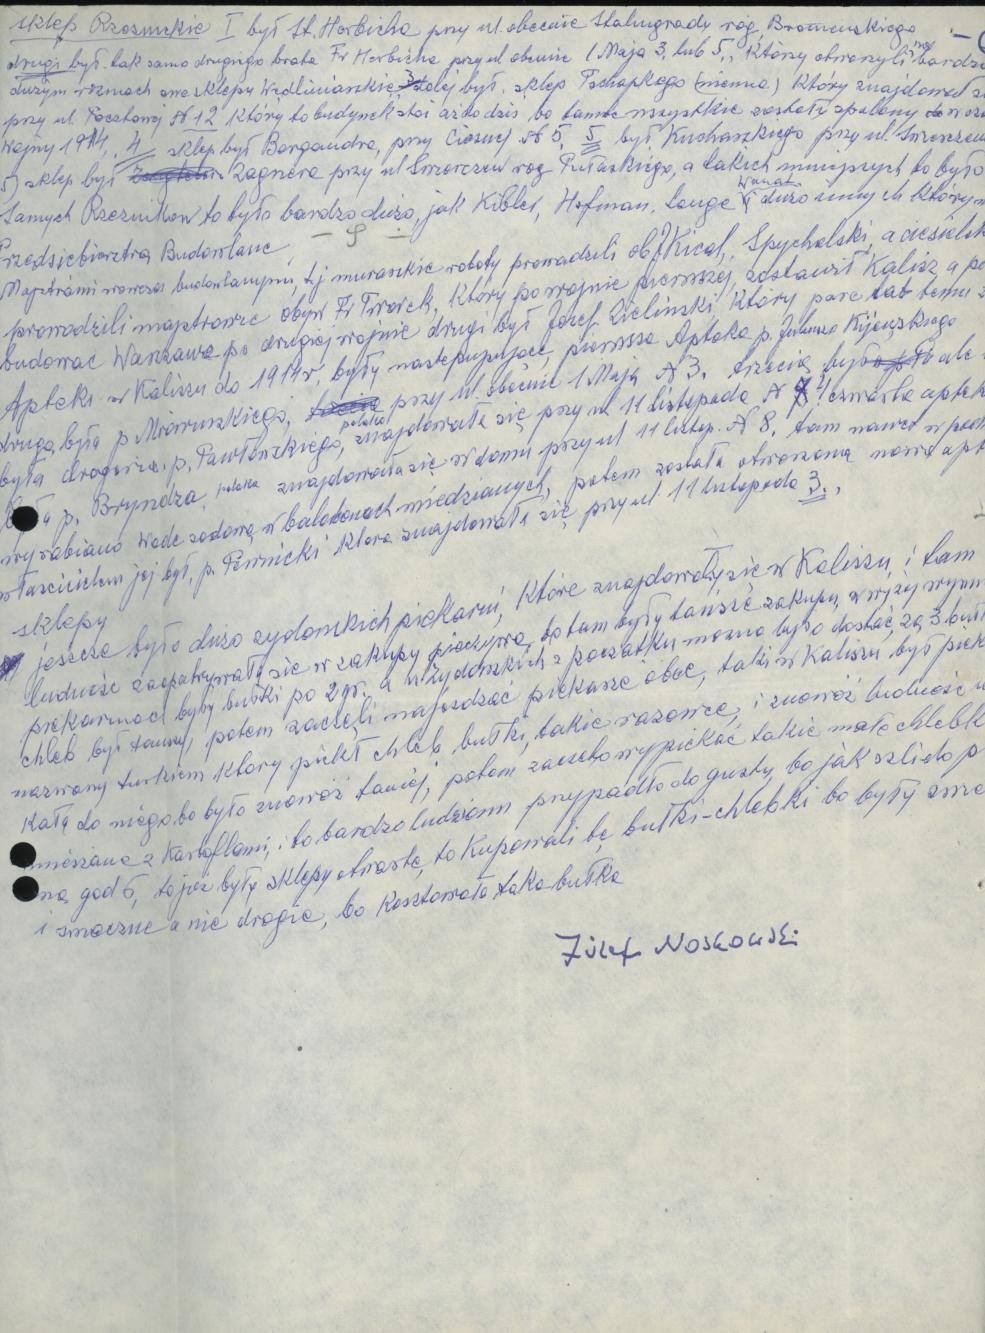 sklep Rzeźnickie I był St. Herbicha przy ul. obecnie Stalingradu róg, Bromirskiego
drugi był tak samo drugiego brata Fr Herbicha przy ul obecnie 1 Maja 3, lub 5., który otworzyli na bardzo
dużym swe sklepy Wędliniarskie, 3 był, sklep który znajdował
przy ul. Pocztowej № 12 który to budynek stoi aż do dziś, bo tamte wszystkie zostały spalone
Wojny 1914., 4 sklep był Bergandra, przy Ciasnej № 5, 5 był, Kucharskiego przy ul.
5) sklep był Zagnera przy ul róg Pułaskiego, a takich mniejszych to było
samych Rzeźników to było bardzo dużo, jak Kibler, Hofman, Lange Wanat i dużo innych który
- 9 -
Przedsiębiorstra Budowlane
Majstrami wowczas budowlanymi, tj murarskie roboty prowadzili ob. Kical, Spychalski, a ciesielsk
prowadzili majstrowie obyw Fr Tworek, który po wojnie pierwszej, zostawił Kalisz a po
budować Warszawę po drugiej wojnie drugi był Józef Zieliński, który parę lat temu
Apteki w Kaliszu do 1914 r, były następujące, pierwsza Apteka p. Juliusza Kijewskiego
druga była p Mrówczskiego, przy ul. obecnie 1 Maja № 3. trzecia
była drogeria p. Pawłowskiego, polska znajdowała się przy ul 11 Listopada № 4 czwarta apteka
była p. Bryndza, polska znajdowała się w domu przy ul 11 Listop. № 8, tam nawet w
wyrabiano wodę sodową w balonach miedzianych, potem została otworzona nowa apt
właścicielem jej był, p. która znajdowała się przy ul 11 Listopada 3.,
sklepy
jeszcze było dużo żydowskich piekarń, które znajdowały się w Kaliszu, i tam
ludność zaopatrywała się w zakupy pieczywa, bo tam były tańsze zakupy, w wyżej wymi
piekarniach były bułki po 2 gr. a u Żydoskich z początku można było dostać, za 3
chleb był tańszy, potem zaczęli najeżdżać piekarze obce, taki w Kaliszu był piek
nazwany turkiem który piekł chleb, bułki, takie razowce, i znowóż ludność
kała do niego bo było znowóż taniej, potem zaczęto wypiekać takie małe chlebk
mieszane z Kartoflami, i to bardzo ludziom przypadło do gustu, bo jak szli do
na god 6, to już były sklepy otwarte, to kupowali te, bułki-chlebki bo były
i smaczne a nie drogie, bo kosztowała taka bułka
Józef Noskowski